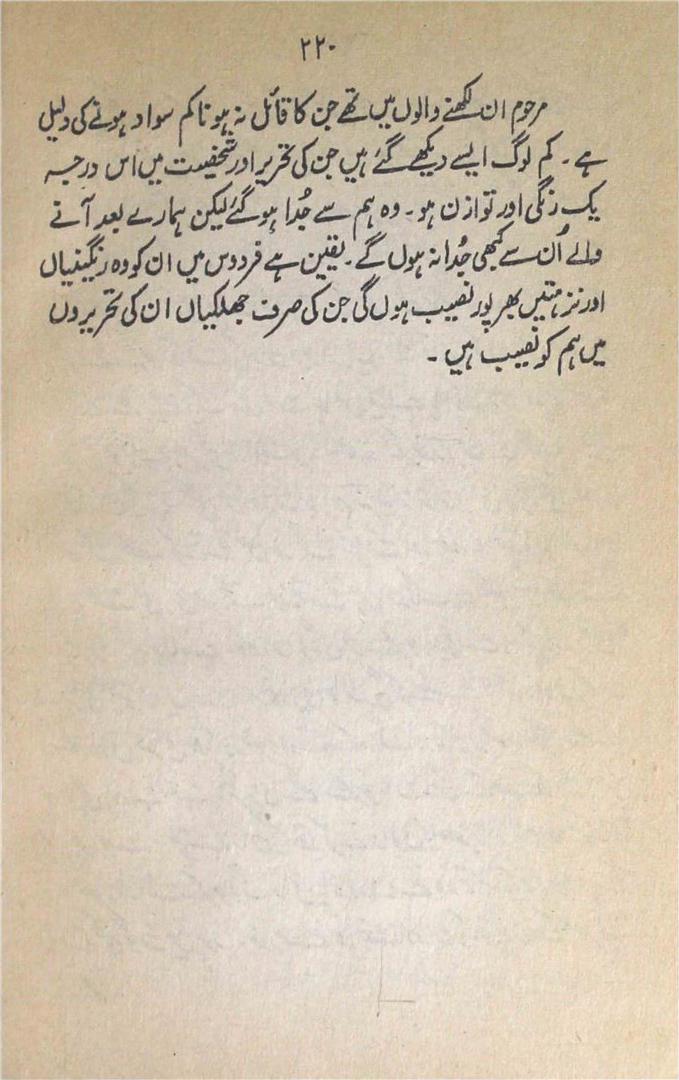 ۲۲۰
مرحوم ان لکھنے والوں میں تھے جن کا قائل نہ ہونا کم سواد ہونے کی دلیل
ہے ۔ کم لوگ ایسے دیکھے گئے ہیں جن کی تحریر اور شخصیت میں اس درجہ
یک رنگی اور توازن ہو ۔ وہ ہم سے جُدا ہو گئے لیکن ہمارے بعد آنے
والے اُن سے کبھی جُدا نہ ہوں گے ۔ یقین ہے فردوس میں ان کو وہ رنگینیاں
اور نزہتیں بھرپور نصیب ہوں گی جن کی صرف جھلکیاں ان کی تحریروں
میں ہم کو نصیب ہیں ۔